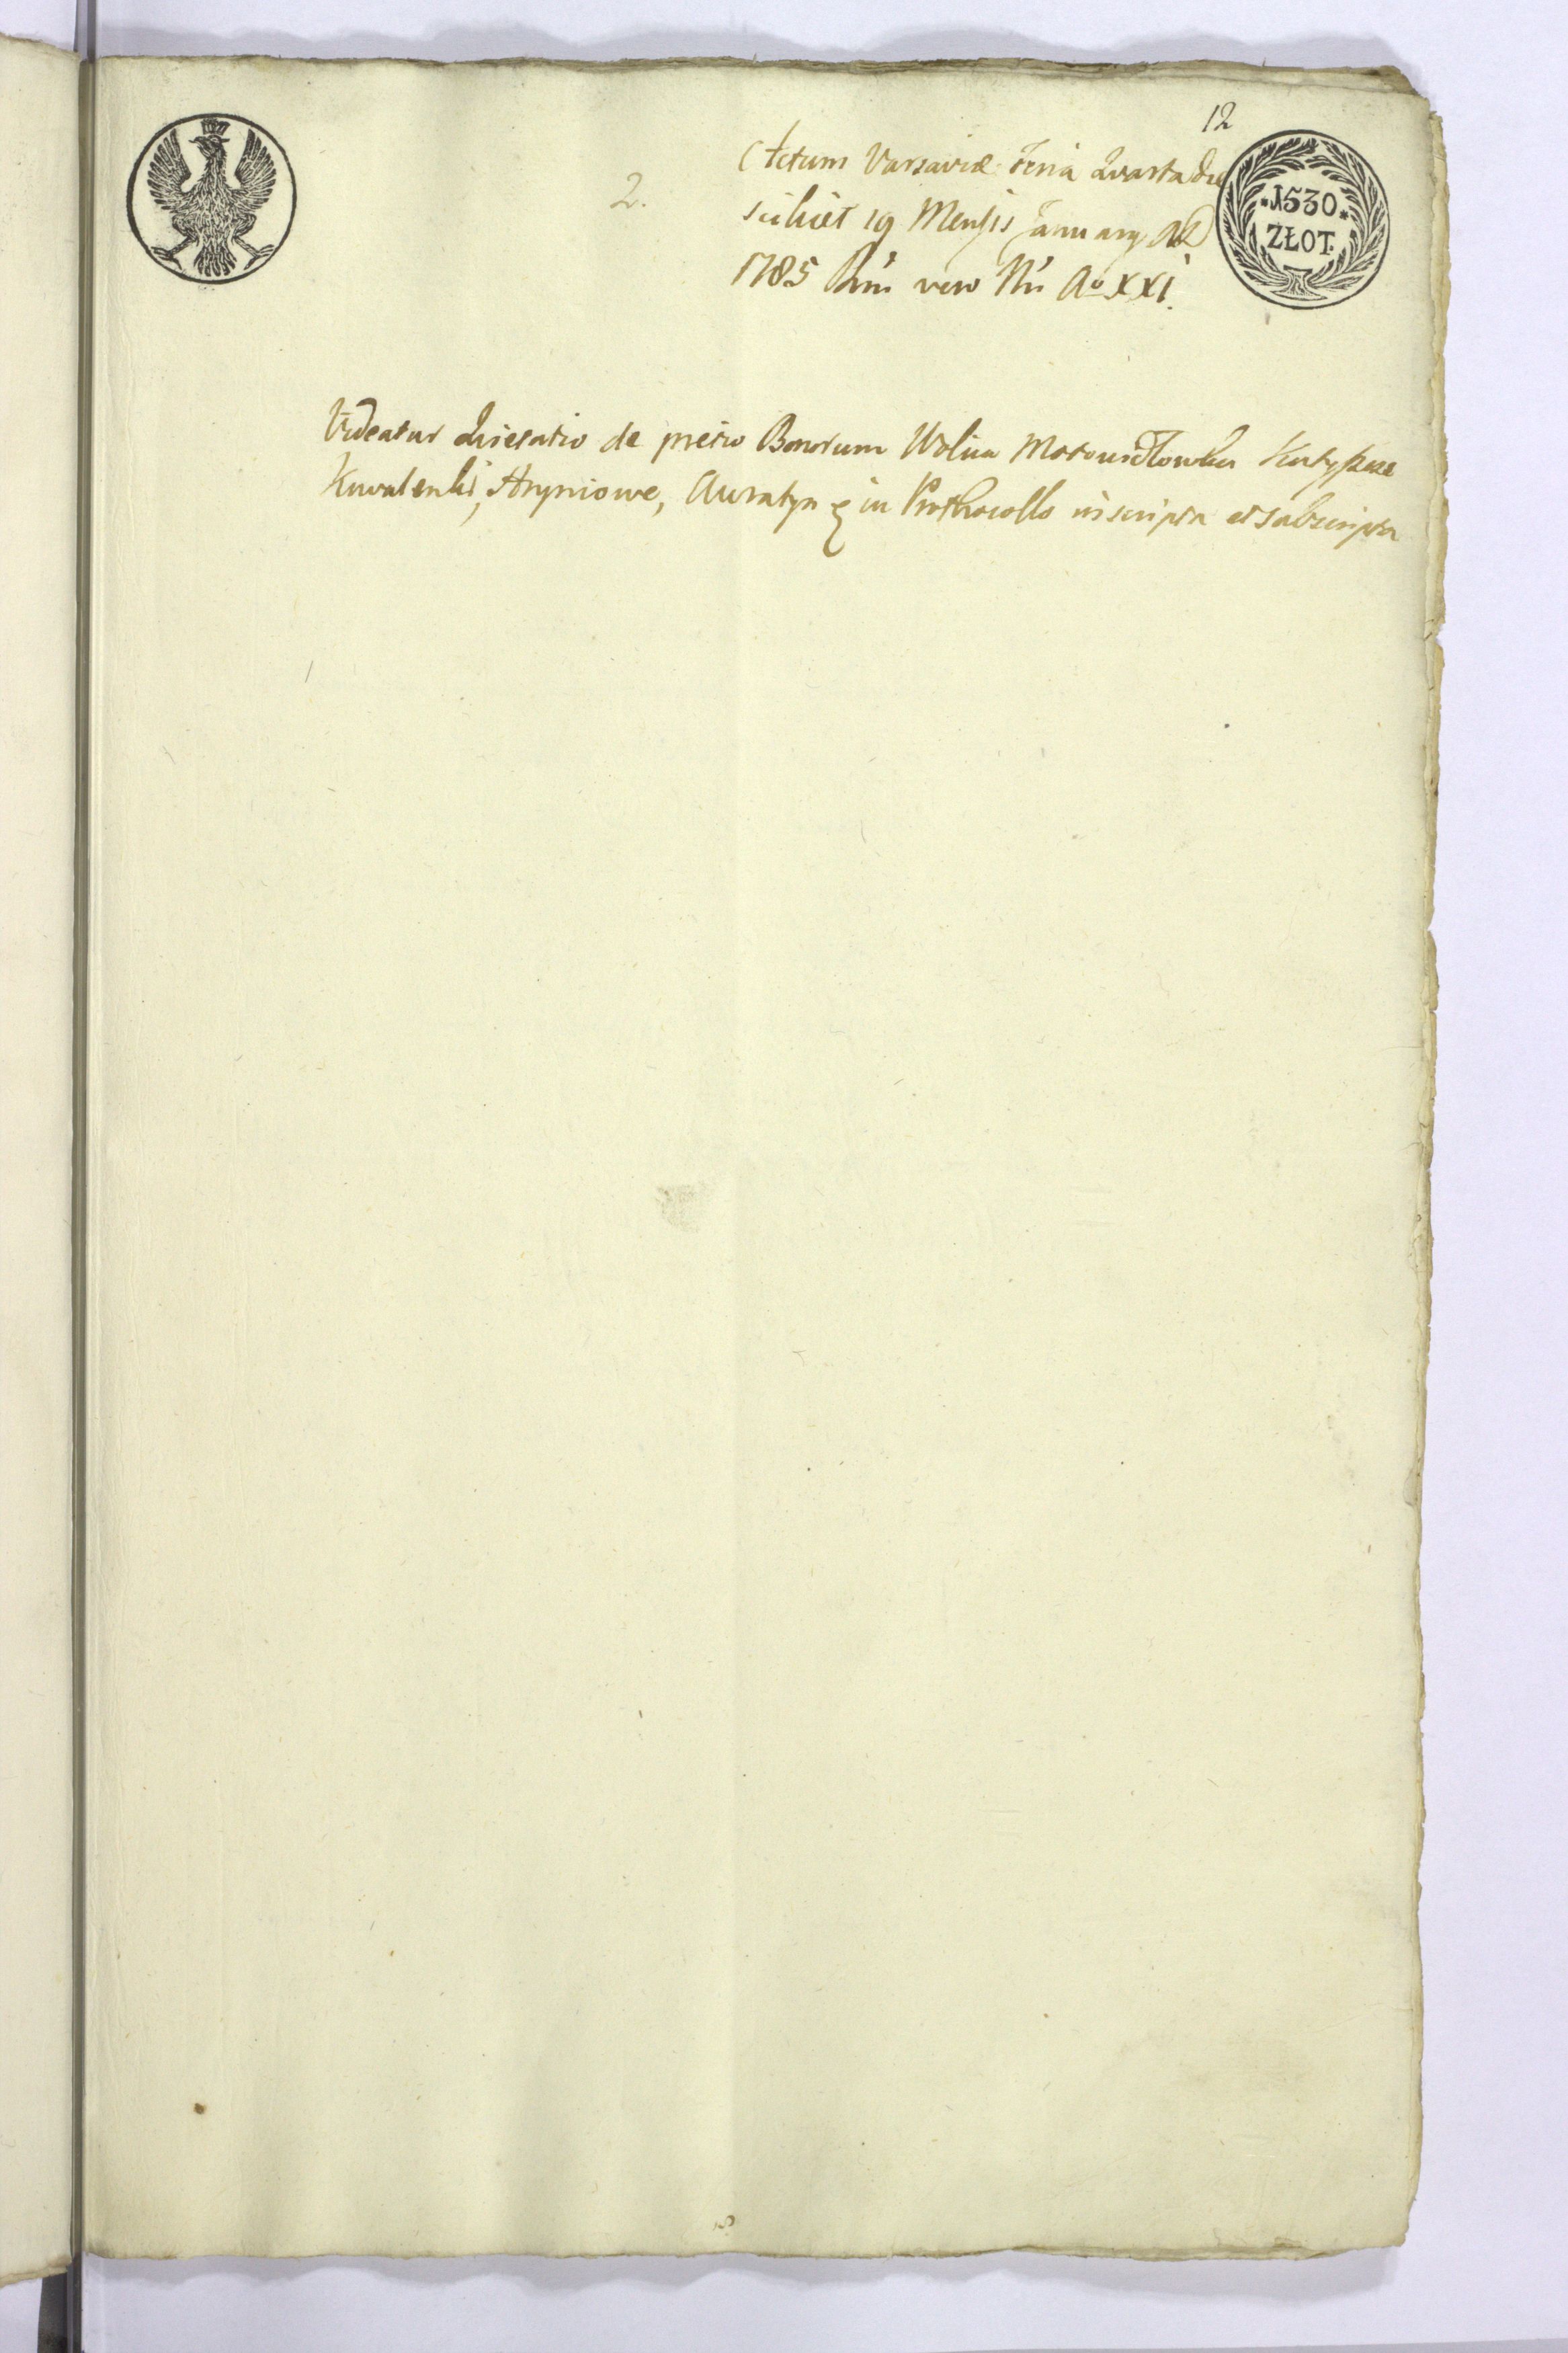 12
2.
Actum Varsaviæ Feria Quarta die
scilicet 19 Mensis January AD
1785 Rni vero Nri Ao XXI.
1530
ZŁOT.
Videatur Quietatio de pretio Bonorum Wolica Motowidłowka
Kowalenki, Hryniowce, Auratyn in Prothocollo inscripta et subscripta